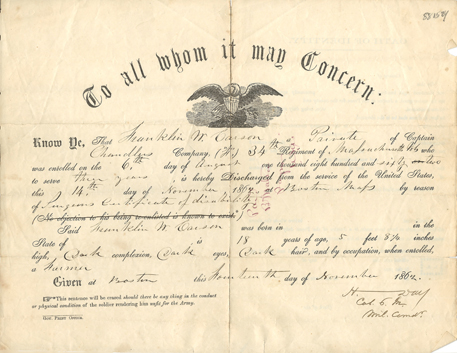 To all whom it may Concern:
Know Ye, That Franklin W. a Private of Captain
Company (F) 34th Regiment of Massachusetts who
was enrolled on the 6th day of August one thousand eight hundred and sixty two
to serve three years is hereby Discharged from the service of the United States,
this 14th day of November 1862 at Boston Mass by reason
of Surgeons Certificate of disability
(No objection to his being re-enlisted is known to exist.)
Said Franklin W. was born in in the
State of 18 years of age, 5 feet 8½ inches
high, Dark complexion, Dark eyes, Dark hair, and by occupation, when enrolled,
a Farmer
Given at Boston this Fourteenth day of November 1862.
This sentence will be erased should there be any thing in the conduct
or physical condition of the soldier rendering him unfit for the Army.
H. Day
Col
Mil. Comdr